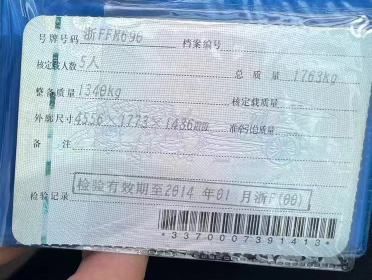 号牌号码 浙FFM696 档案编号
核定载人数 5人 总质量 1763kg
整备质量 1340kg 核定载质量 --
外廓尺寸 4556×1773×1436mm 准牵引总质量 --
备 注
检验记录 检验有效期至2014 年01 月浙F(00)
*3370007391413*